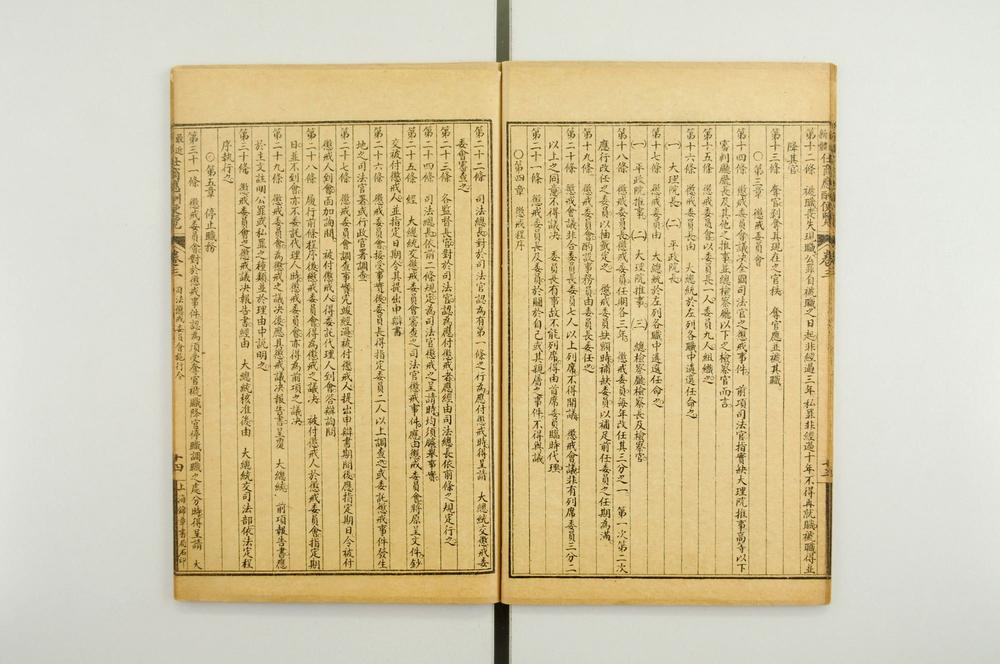 第十二條 褫職喪失現職公罪自褫職之日起非經過三年私罪非經過十年不得再就職褫職得並
降其官
第十三條 奪官剝奪其現在之官秩 奪官應並褫其職
○第三章 懲戒委員會
第十四條 懲戒委員會議決全國司法官之懲戒事件 前項司法官指實缺大理院推事高等以下
審判廳廳長及其他之推事並總檢察廳以下之檢察官而言
第十五條 懲戒委員會以委員長一人委員九人組織之
第十六條 懲戒委員長由 大總統於左列各職中遴選任命之
(一) 大理院長 (二) 平政院長
第十七條 懲戒委員由 大總統於左列各職中遴選任命之
(一) 平政院推事 (二) 大理院推事 (三) 總檢察廳檢察長及檢察官
第十八條 懲戒委員長懲戒委員任期各三年 懲戒委員每年改任其三分之一 第一次第二次
應行改任之委員以抽籤定之 懲戒委員缺額時補缺委員以補足前任委員之任期為滿
第十九條 懲戒委員會酌設事務員由委員長委任之
第二十條 懲戒會議非合委員長委員七人以上列席不得開議 懲戒會議非有列席委員三分二
以上之同意不得議決 委員長有事故不能列席得由首席委員臨時代理
第二十一條 懲戒委員長及委員於關於自己或其親屬之事件不得與議
○第四章 懲戒程序
第二十二條 司法總長對於司法官認為有第一條之行為應付懲戒時得呈請 大總統交懲戒委
委會審查之
第二十三條 各監督長官對於司法官認為應付懲戒者應經由司法總長依前條之規定行之
第二十四條 司法總長依前二條規定為司法官懲戒之呈請時均須臚舉事實
第二十五條 經 大總統交懲戒委員會審查之司法官懲戒事件應由懲戒委員會將原呈文件鈔
交被付懲戒人並指定日期令其提出申辯書
第二十六條 懲戒委員會接受事實後委員長得指定委員二人以上調查之或委託懲戒事件發生
地之司法官署或行政官署調查
第二十七條 懲戒委員會調查事實完竣經過被付懲戒人提出申辯書期間後應指定期日令被付
懲戒人到會面加詢問 被付懲戒人得委託代理人到會答辯詢問
第二十八條 履行前條程序後懲戒委員會得為懲戒之議決 被付懲戒人於懲戒委員會指定期
日並不到會亦不委託代理人時懲戒委員會亦得為前項之議決
第二十九條 懲戒委員會為懲戒之議決後應具懲戒議決報告書呈覆 大總統 前項報告書應
於主文註明公罪或私罪之種類並於理由中說明之
第三十條 懲戒委員會之懲戒議決報告書經由 大總統核准後由 大總統交司法部依法定程
序執行之
○第五章 停止職務
第三十一條 懲戒委員會對於懲戒事件認為須受奪官褫職降官停職調職之處分時得呈請 大
卷三 司法懲戒委員會施行令 十四 上海錦章書局石印